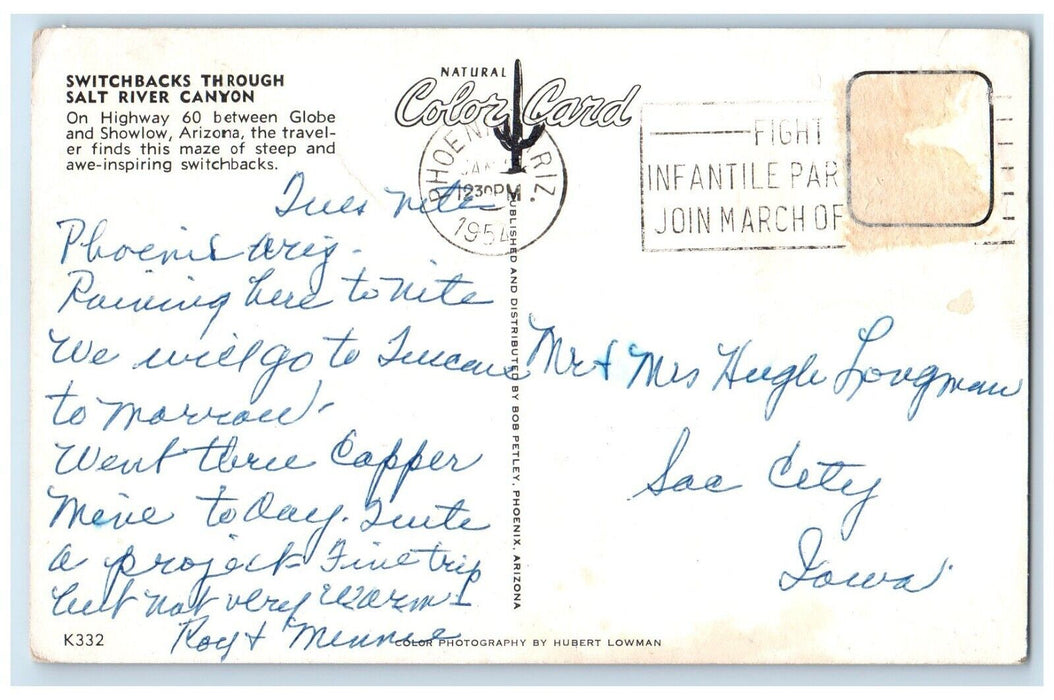 SWITCHBACKS THROUGH
SALT RIVER CANYON
On Highway 60 between Globe
and Showlow, Arizona, the travel-
er finds this maze of steep and
awe-inspiring switchbacks.
NATURAL
Color Card
PHOENIX ARIZ.
JAN
1230PM
1954
FIGHT
INFANTILE PAR
JOIN MARCH OF
Tues nite
Phoenix Ariz.
Raining here to nite
We will go to Tuscon
to morrow.
Went thru Copper
Mine to Day. Quite
a project. Fine trip
but not very warm
Roy & Minnie
Mr & Mrs Hugh Longman
Sac City
Iowa
PUBLISHED AND DISTRIBUTED BY BOB PETLEY, PHOENIX, ARIZONA
K332
COLOR PHOTOGRAPHY BY HUBERT LOWMAN